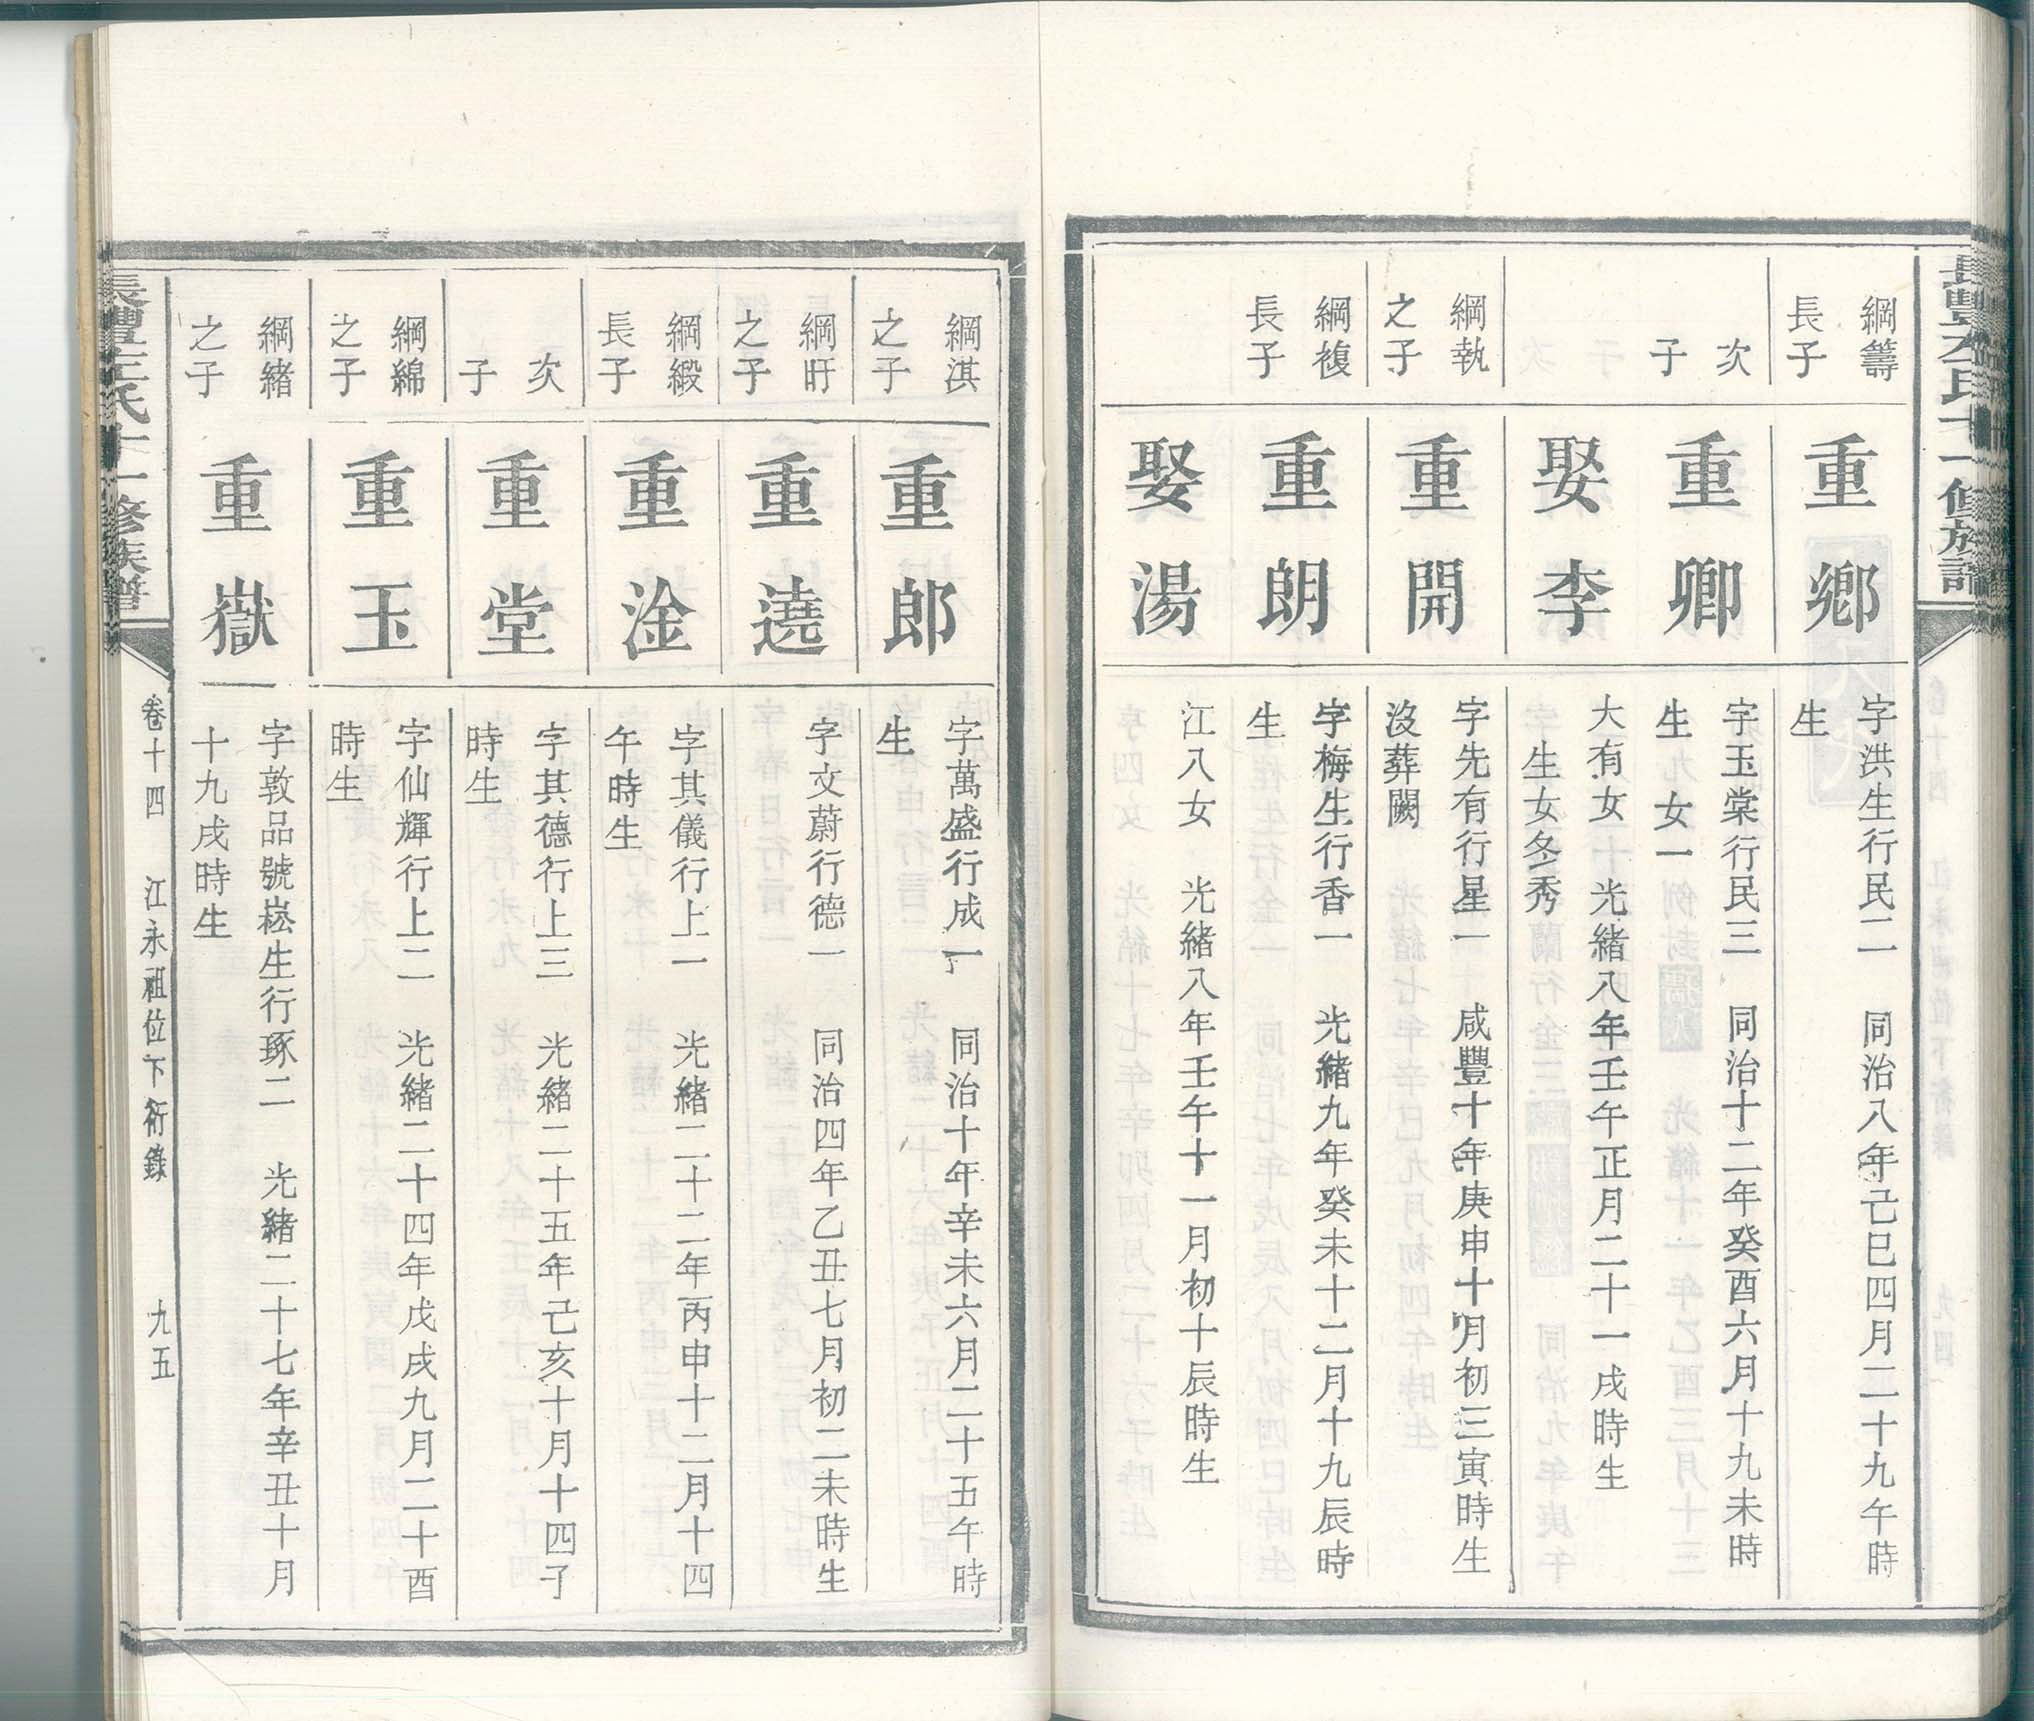 綱籌
長子
重鄉
字洪生行民二　同治八年己巳四月二十九午時
生
次
子
重卿
字玉棠行民三　同治十二年癸酉六月十九未時
生　女一
娶李
大有女　光緒八年壬午正月二十一戌時生
生女冬秀
綱執
之子
重開
字先有行星一　咸豐十年庚申十月初三寅時生
沒葬闕
綱複
長子
重朗
字梅生行香一　光緒九年癸未十二月十九辰時
生
娶湯
江八女　光緒八年壬午十一月初十辰時生
綱淇
之子
重郎
字萬盛行成一　同治十年辛未六月二十五午時
生
綱旴
之子
重遶
字文蔚行德一　同治四年乙丑七月初二未時生
綱緞
長子
重淦
字其儀行上一　光緒二十二年丙申十二月十四
午時生
次
子
重堂
字其德行上三　光緒二十五年己亥十月十四子
時生
綱綿
之子
重玉
字仙輝行上二　光緒二十四年戊戌九月二十酉
時生
綱緒
之子
重嶽
字敦品號崧生行琢二　光緒二十七年辛丑十月
十九戌時生
十一修族譜
卷十四　江永祖位下衍錄　九五